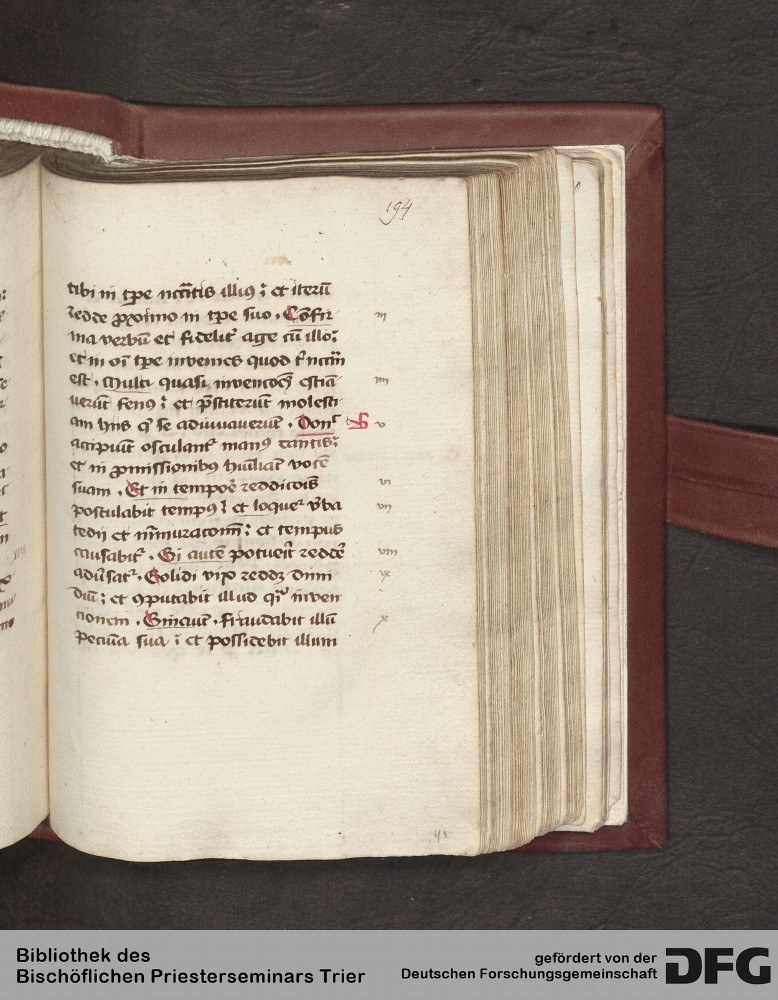 194
tibi in tp̄e nccītis illiꝰ : et iterū
redde ꝓximo in tp̄e suo . Cōfir
iii
ma verbū et fidelit͛ age cū illo :
et in oī tp̄e invenies quod t͛ nccm̄
est . Multi quasi invencōēȝ estīa
iiii
verūt fenꝰ : et p̄stiterūt molesti
am hiis q̇ se adiuvaverūt . Don͛
v
accipiūt osculant͛ manꝰ dantis :
et in ꝓmissionibꝰ humiliāt vocē
suam . Et in tempoē reddicōīs
vi
postulabit tempꝰ : et loquet͛ v̄ba
vii
tedii et m̄muracōnū : et tempus
causabit͛ . Si autē potuerīt reddēē
viii
adv̄sat͛ . Solidi vix reddȝ dimi
ix
diū : et ꝯputabit illud q̄ı inven
cionem . Sinautē . fraudabit illū
x
Pecunīa sua : et possidebit illum
Bibliothek des
Bischöflichen Priesterseminars Trier
gefördert von der
Deutschen Forschungsgemeinschaft
DFG